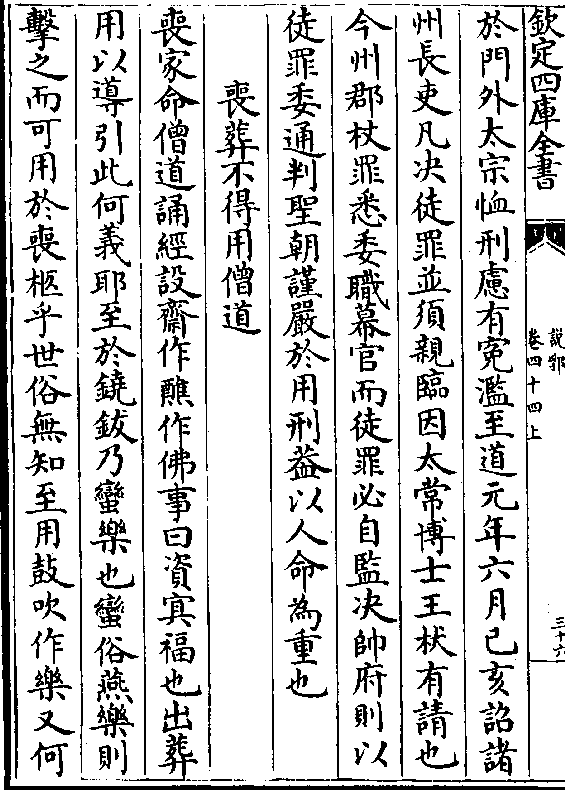 欽定四庫全書
說郛
卷四十四上
三十六
於門外太宗恤刑慮有寃濫至道元年六月己亥詔諸
州長吏凡決徒罪並須親臨因太常博士王栿有請也
今州郡杖罪悉委職幕官而徒罪必自監決帥府則以
徒罪委通判聖朝謹嚴於用刑益以人命為重也
喪葬不得用僧道
喪家命僧道誦經設齋作醮作佛事曰資冥福也出葬
用以導引此何義耶至於鐃鈸乃蠻樂也蠻俗燕樂則
擊之而可用於喪柩乎世俗無知至用鼓吹作樂又何